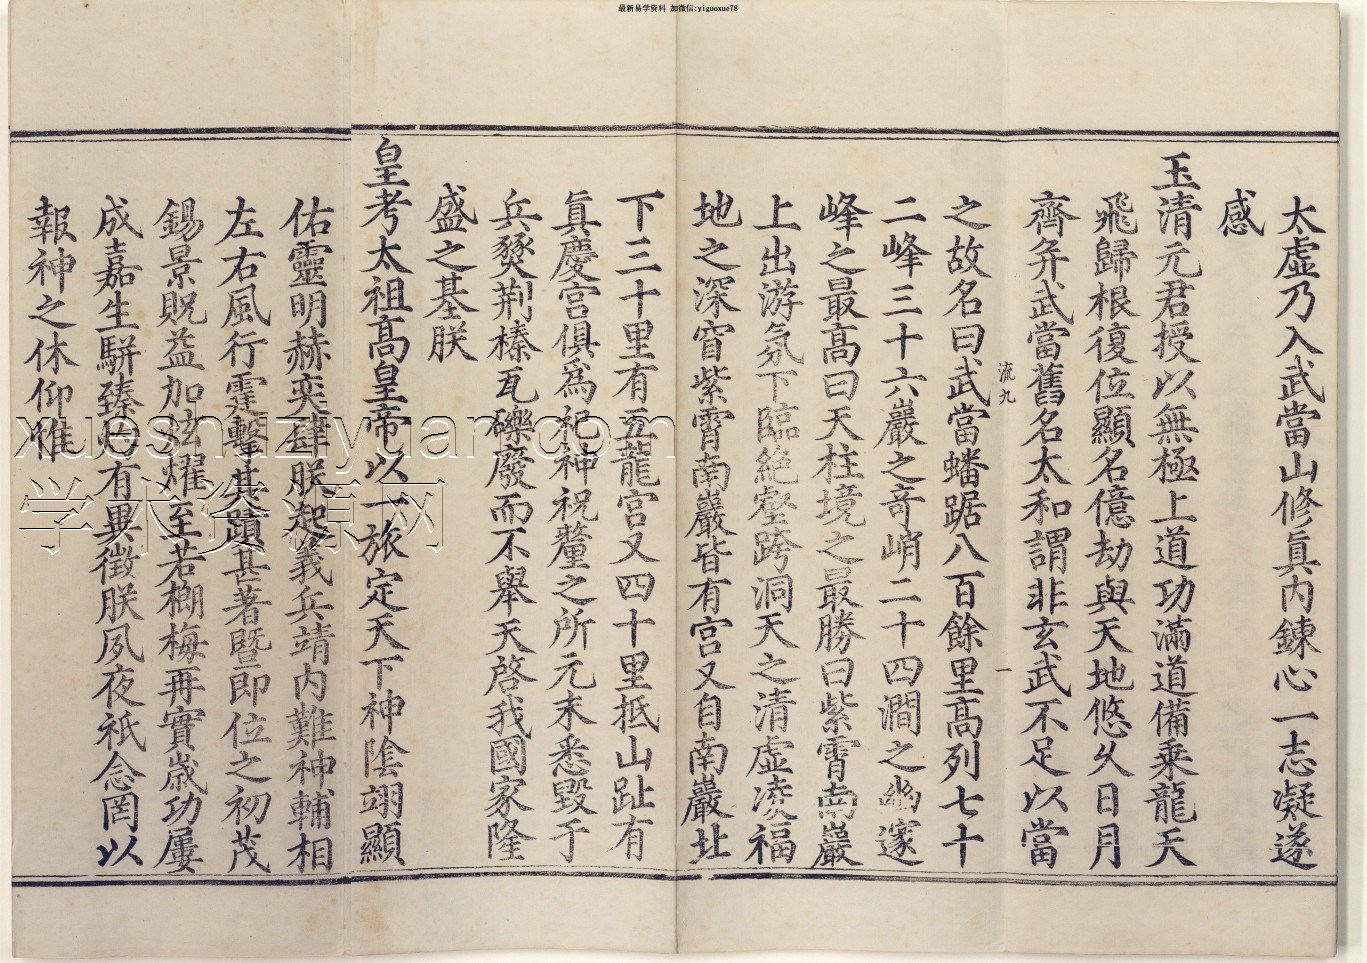 最新易学资料 加微信:yiguoxue78
太虛乃入武當山修眞内鍊心一志凝遂
感
玉清元君授以無極上道功滿道備乗龍天
飛歸根復位顯名億劫與天地悠久日月
齊并武當舊名太和謂非玄武不足以當
流九
一
之故名曰武當蟠踞八百餘里高列七十
二峰三十六巖之竒峭二十四澗之幽邃
峰之最高曰天柱境之最勝曰紫霄南巖
上出游氛下臨絶壑跨洞天之清虚凌福
地之深窅紫霄南巖皆有宫又自南巖北
下三十里有五龍宫又四十里抵山趾有
眞慶宫俱爲祀神祝釐之所元末悉毁于
兵燹荆榛瓦礫廢而不舉天啓我國家隆
盛之基朕
皇考太祖高皇帝以一旅定天下神陰翊顯
佑靈明赫奕肆朕起義兵靖内難神輔相
左右風行霆擊其蹟甚著暨即位之初茂
錫景貺益加炫燿至若榔梅再實嵗功屢
成嘉生駢臻灼有異徵朕夙夜祗念罔以
報神之休仰惟
xueshuziyuan.com
学术资源网